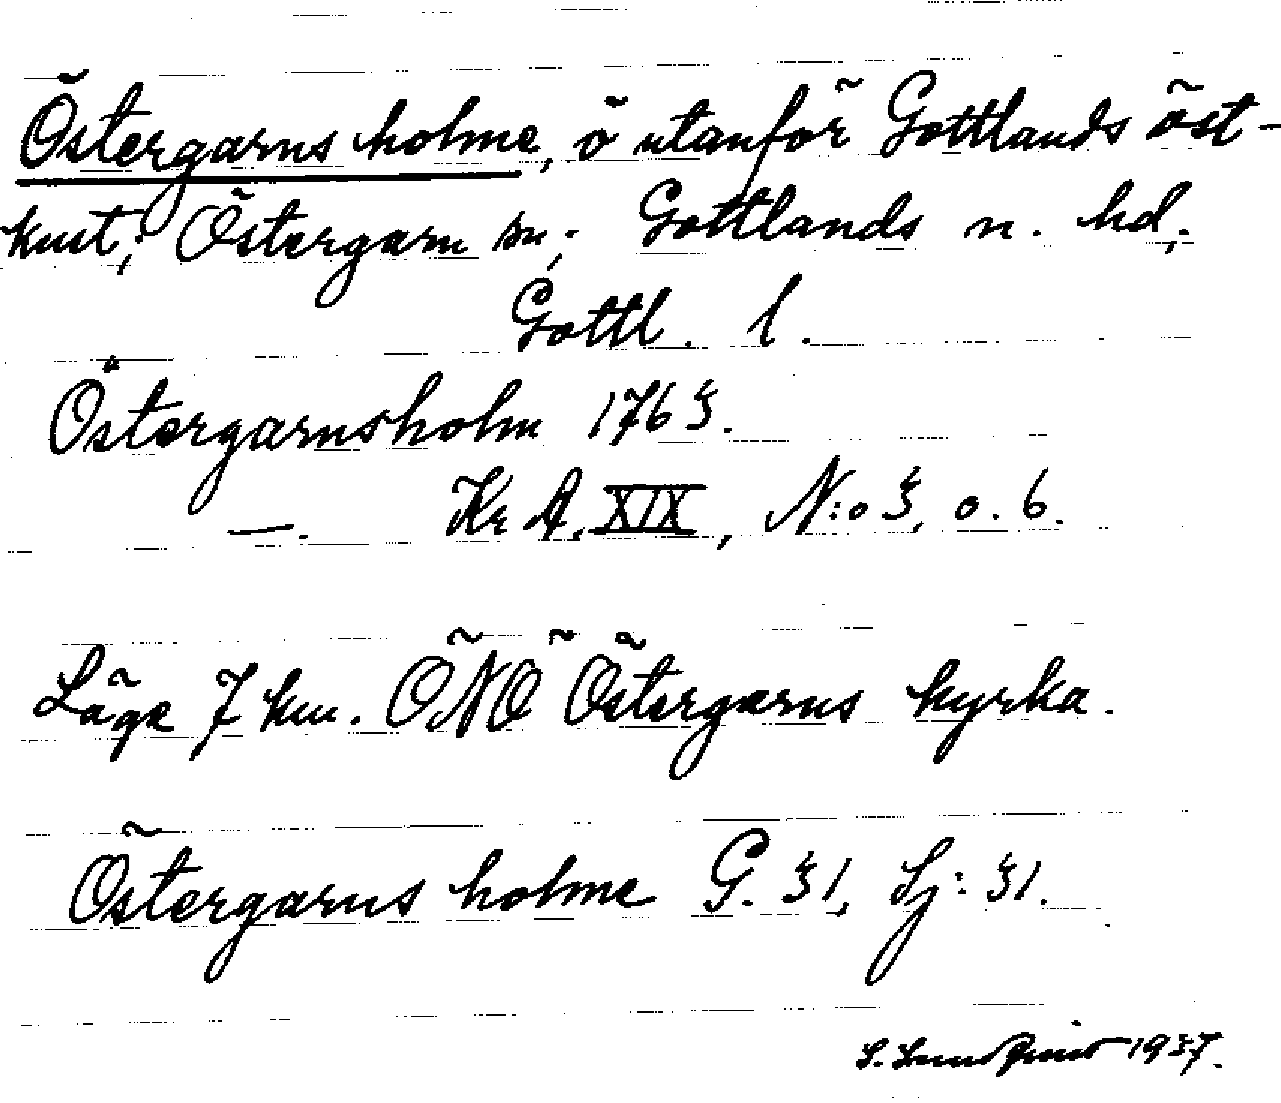 Östergarns holme, ö utanför Gottlands öst-
kust; Östergarn sn; Gottlands n. hd,
Gottl. l.
Östergarnsholm 1763.
—. Kr A, XIX, N:o 3, o. 6.
Läge 7 km. ÖNÖ Östergarns kyrka.
Östergarns holme G. 31, Sj: 31.
S. Lundqvist 1937.